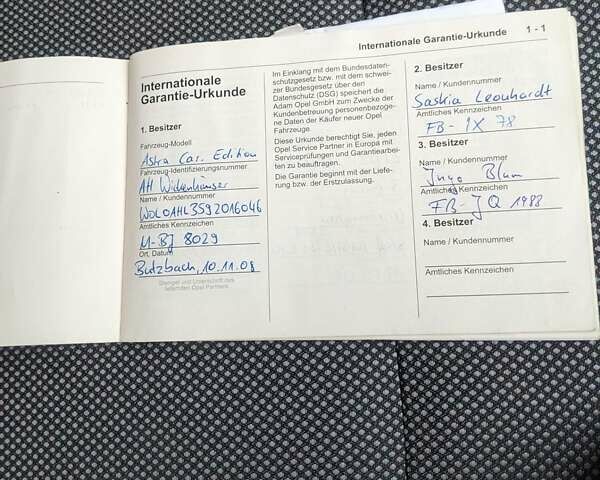 Internationale Garantie-Urkunde 1 - 1
Internationale
Garantie-Urkunde
1. Besitzer
Fahrzeug-Modell
Astra Car. Edition
Fahrzeug-Identifizierungsnummer
AH Wickenhäuser
Name / Kundennummer
WOLOAHL3592016046
Amtliches Kennzeichen
M-BJ 8029
Ort, Datum
Butzbach, 10.11.08
Stempel und Unterschrift des
liefernden Opel Partners
Im Einklang mit dem Bundesdaten-
schutzgesetz bzw. mit dem schwei-
zer Bundesgesetz über den
Datenschutz (DSG) speichert die
Adam Opel GmbH zum Zwecke der
Kundenbetreuung personenbezoge-
ne Daten der Käufer neuer Opel
Fahrzeuge.
Diese Urkunde berechtigt Sie, jeden
Opel Service Partner in Europa mit
Serviceprüfungen und Garantiearbei-
ten zu beauftragen.
Die Garantie beginnt mit der Liefe-
rung bzw. der Erstzulassung.
2. Besitzer
Name / Kundennummer
Saskia Leonhardt
Amtliches Kennzeichen
FB-IX 78
3. Besitzer
Name / Kundennummer
Ingo Blum
Amtliches Kennzeichen
FB-JQ 1988
4. Besitzer
Name / Kundennummer
Amtliches Kennzeichen